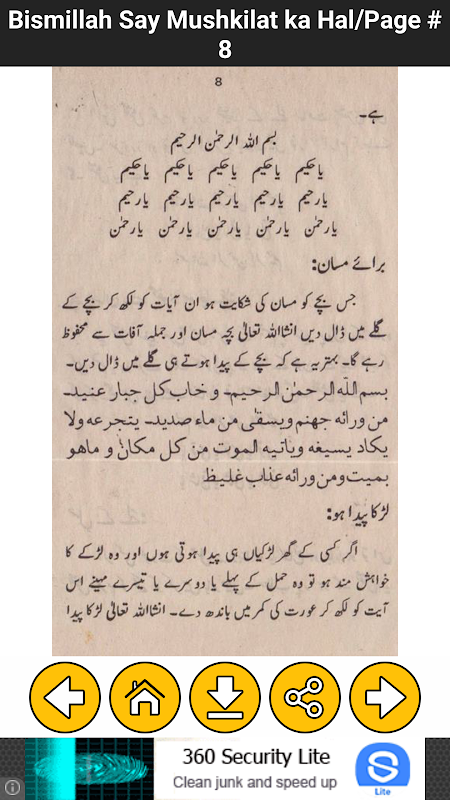 Bismillah Say Mushkilat ka Hal/Page #
8
8
ہے۔
بسم اللہ الرحمٰن الرحیم
یاحکیم یاحکیم یاحکیم یاحکیم یاحکیم
یارحیم یارحیم یارحیم یارحیم یارحیم
یارحمٰن یارحمٰن یارحمٰن یارحمٰن یارحمٰن
برائے مسان:
جس بچے کو مسان کی شکایت ہو ان آیات کو لکھ کر بچے کے
گلے میں ڈال دیں انشااللہ تعالیٰ بچہ مسان اور جملہ آفات سے محفوظ
رہے گا۔ بہتر یہ ہے کہ بچے کے پیدا ہوتے ہی گلے میں ڈال دیں۔
بسم اللّٰہ الرحمٰن الرحیم۔ و خاب کل جبار عنید۔
من ورائہ جھنم ویسقٰی من ماء صدید۔ یتجرعہ ولا
یکاد یسیغہ ویاتیہ الموت من کل مکان و ماھو
بمیت ومن ورائہ عذاب غلیظ
لڑکا پیدا ہو:
اگر کسی کے گھر لڑکیاں ہی پیدا ہوتی ہوں اور وہ لڑکے کا
خواہش مند ہو تو وہ حمل کے پہلے یا دوسرے یا تیسرے مہینے اس
آیت کو لکھ کر عورت کی کمر میں باندھ دے۔ انشااللہ تعالیٰ لڑکا پیدا
360 Security Lite
Clean junk and speed up
Lite